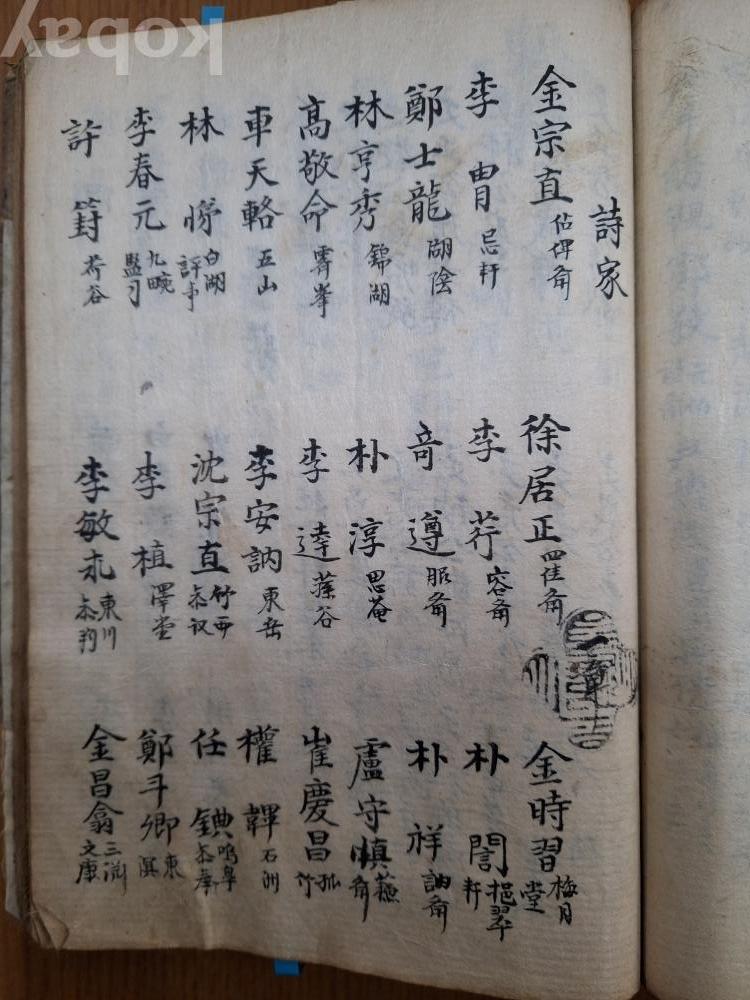 kobay
詩家
金宗直 佔俾齋 徐居正 四佳齋 金時習 梅月堂
李冑 忌軒 李荇 容齋 朴誾 挹翠軒
鄭士龍 湖陰 奇遵 服齋 朴祥 訥齋
林亨秀 錦湖 朴淳 思菴 盧守愼 蘇齋
高敬命 霽峯 李達 蓀谷 崔慶昌 孤竹
車天輅 五山 李安訥 東岳 權韠 石洲
林悌 白湖 評事 沈宗直 竹西 叅議 任錪 鳴皐 叅奉
李春元 九畹 監司 李植 澤堂 鄭斗卿 東溟
許篈 荷谷 李敏求 東州 叅判 金昌翕 三淵 文康